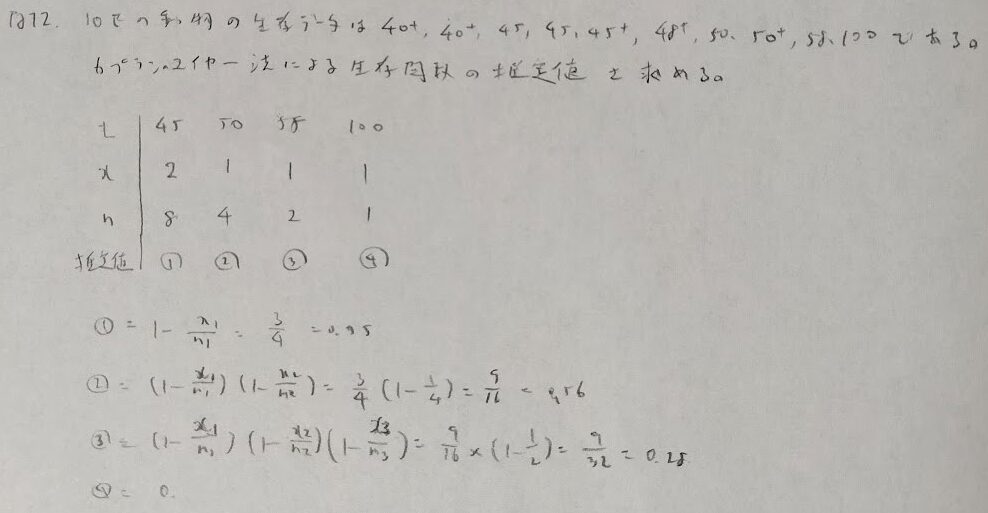 問2. 10匹の動物の生存データは 40+, 40+, 45, 45, 45+, 48+, 50, 50+, 58, 100 である。
カプラン・マイヤー法による生存関数の推定値を求める。
t 45 50 58 100
x 2 1 1 1
n 8 4 2 1
推定値 ① ② ③ ④
① = 1 - x1/n1 = 3/4 = 0.75
② = (1 - x1/n1)(1 - x2/n2) = 3/4 (1 - 1/4) = 9/16 = 0.56
③ = (1 - x1/n1)(1 - x2/n2)(1 - x3/n3) = 9/16 × (1 - 1/2) = 9/32 = 0.28
④ = 0.